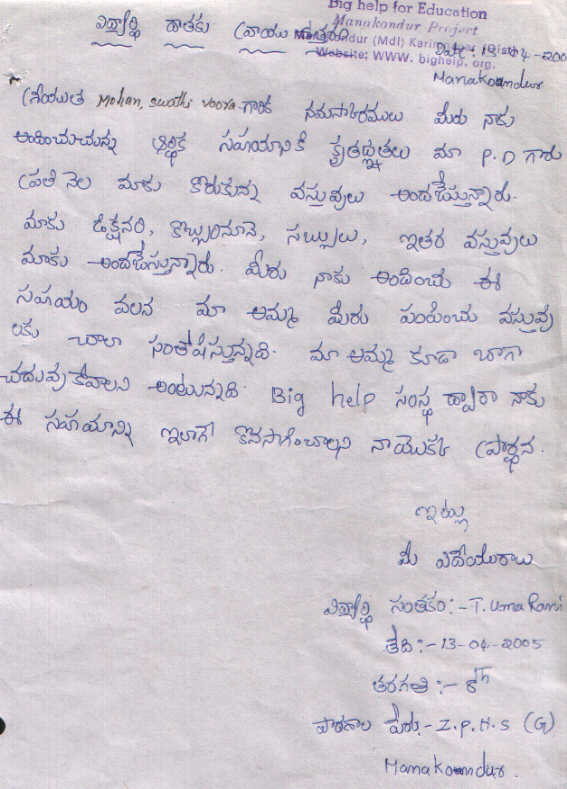 Big help for Education
Manakondur Project
విద్యార్థి దాతకు వ్రాయు ఉత్తరం
Website: WWW. bighelp. org.
13-04-200
Manakoundur
శ్రీయుత Mohan, swathi voora గారికి నమస్కారములు మీరు నాకు
అందించుచున్న ఆర్థిక సహాయానికి కృతజ్ఞతలు మా P.D గారు
ప్రతి నెల మాకు కొరుకున్న వస్తువులు అందజేస్తున్నారు.
మాకు డిక్షనరి, కొబ్బరినూనె, సబ్బులు, ఇతర వస్తువులు
మాకు అందజేస్తున్నారు. మీరు నాకు అందించు ఈ
సహయం వలన మా అమ్మ మీరు పంపించు వస్తువు
లకు చాలా సంతోషిస్తున్నది. మా అమ్మ కూడా బాగా
చదువు కోవాలని అంటున్నది. Big help సంస్థ ద్వారా నాకు
ఈ సహయాన్ని ఇలాగే కొనసాగించాలని నాయొక్క ప్రార్థన.
ఇట్లు
మీ విదేయురాలు
విద్యార్థి సంతకం:- T. Uma Rani
తేది:- 13-04-2005
తరగతి :- 8th
పాఠశాల పేరు- Z.P.H.S (G)
Manakoundur.